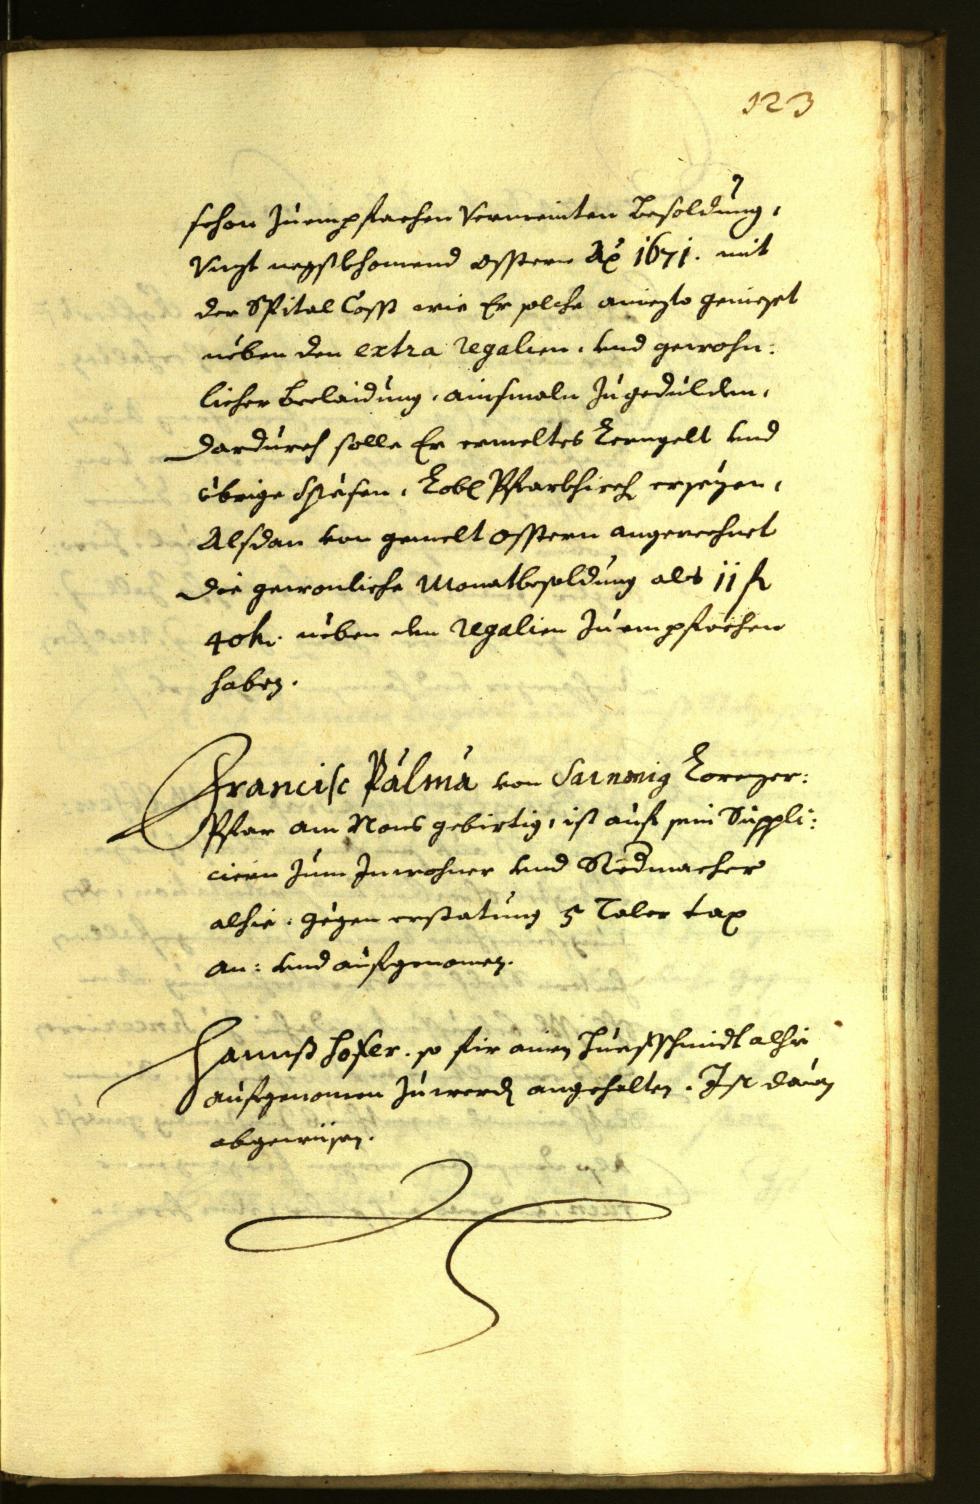 123
schon zuempfachen vermeinten besoldung,
vnzt negstkhomend Osstern Ao 1671. mit
der Spital Cosst wie Er solche aniezto geniesset
neben den extra regalien. vnd gewohn:
licher beclaidung, ainsmaln zugedulden,
dardurch solle Er ermeltes Lerngelt vnd
übrige Spesen, Lobl Pfarkhirch ersezen,
Alsdan von gemelt Osstern angerechnet
die gewonliche Monatbesoldung als 11 fl
40 kr. neben den Regalien zuempfachen
haben.
Francisc Palma von Sarnonig Lorenzer:
Pfar am Nons gebirtig, ist auf sein Suppli:
ciern zum Inwohner vnd Redmacher
alhie, gegen erstatung 5 Taler tax
an: vnd aufgenomen.
Hannß Hofer. so fir ainen Huefschmidt alhie
aufgenomen zuwerden angehalten. Ist dauon
abgewisen.